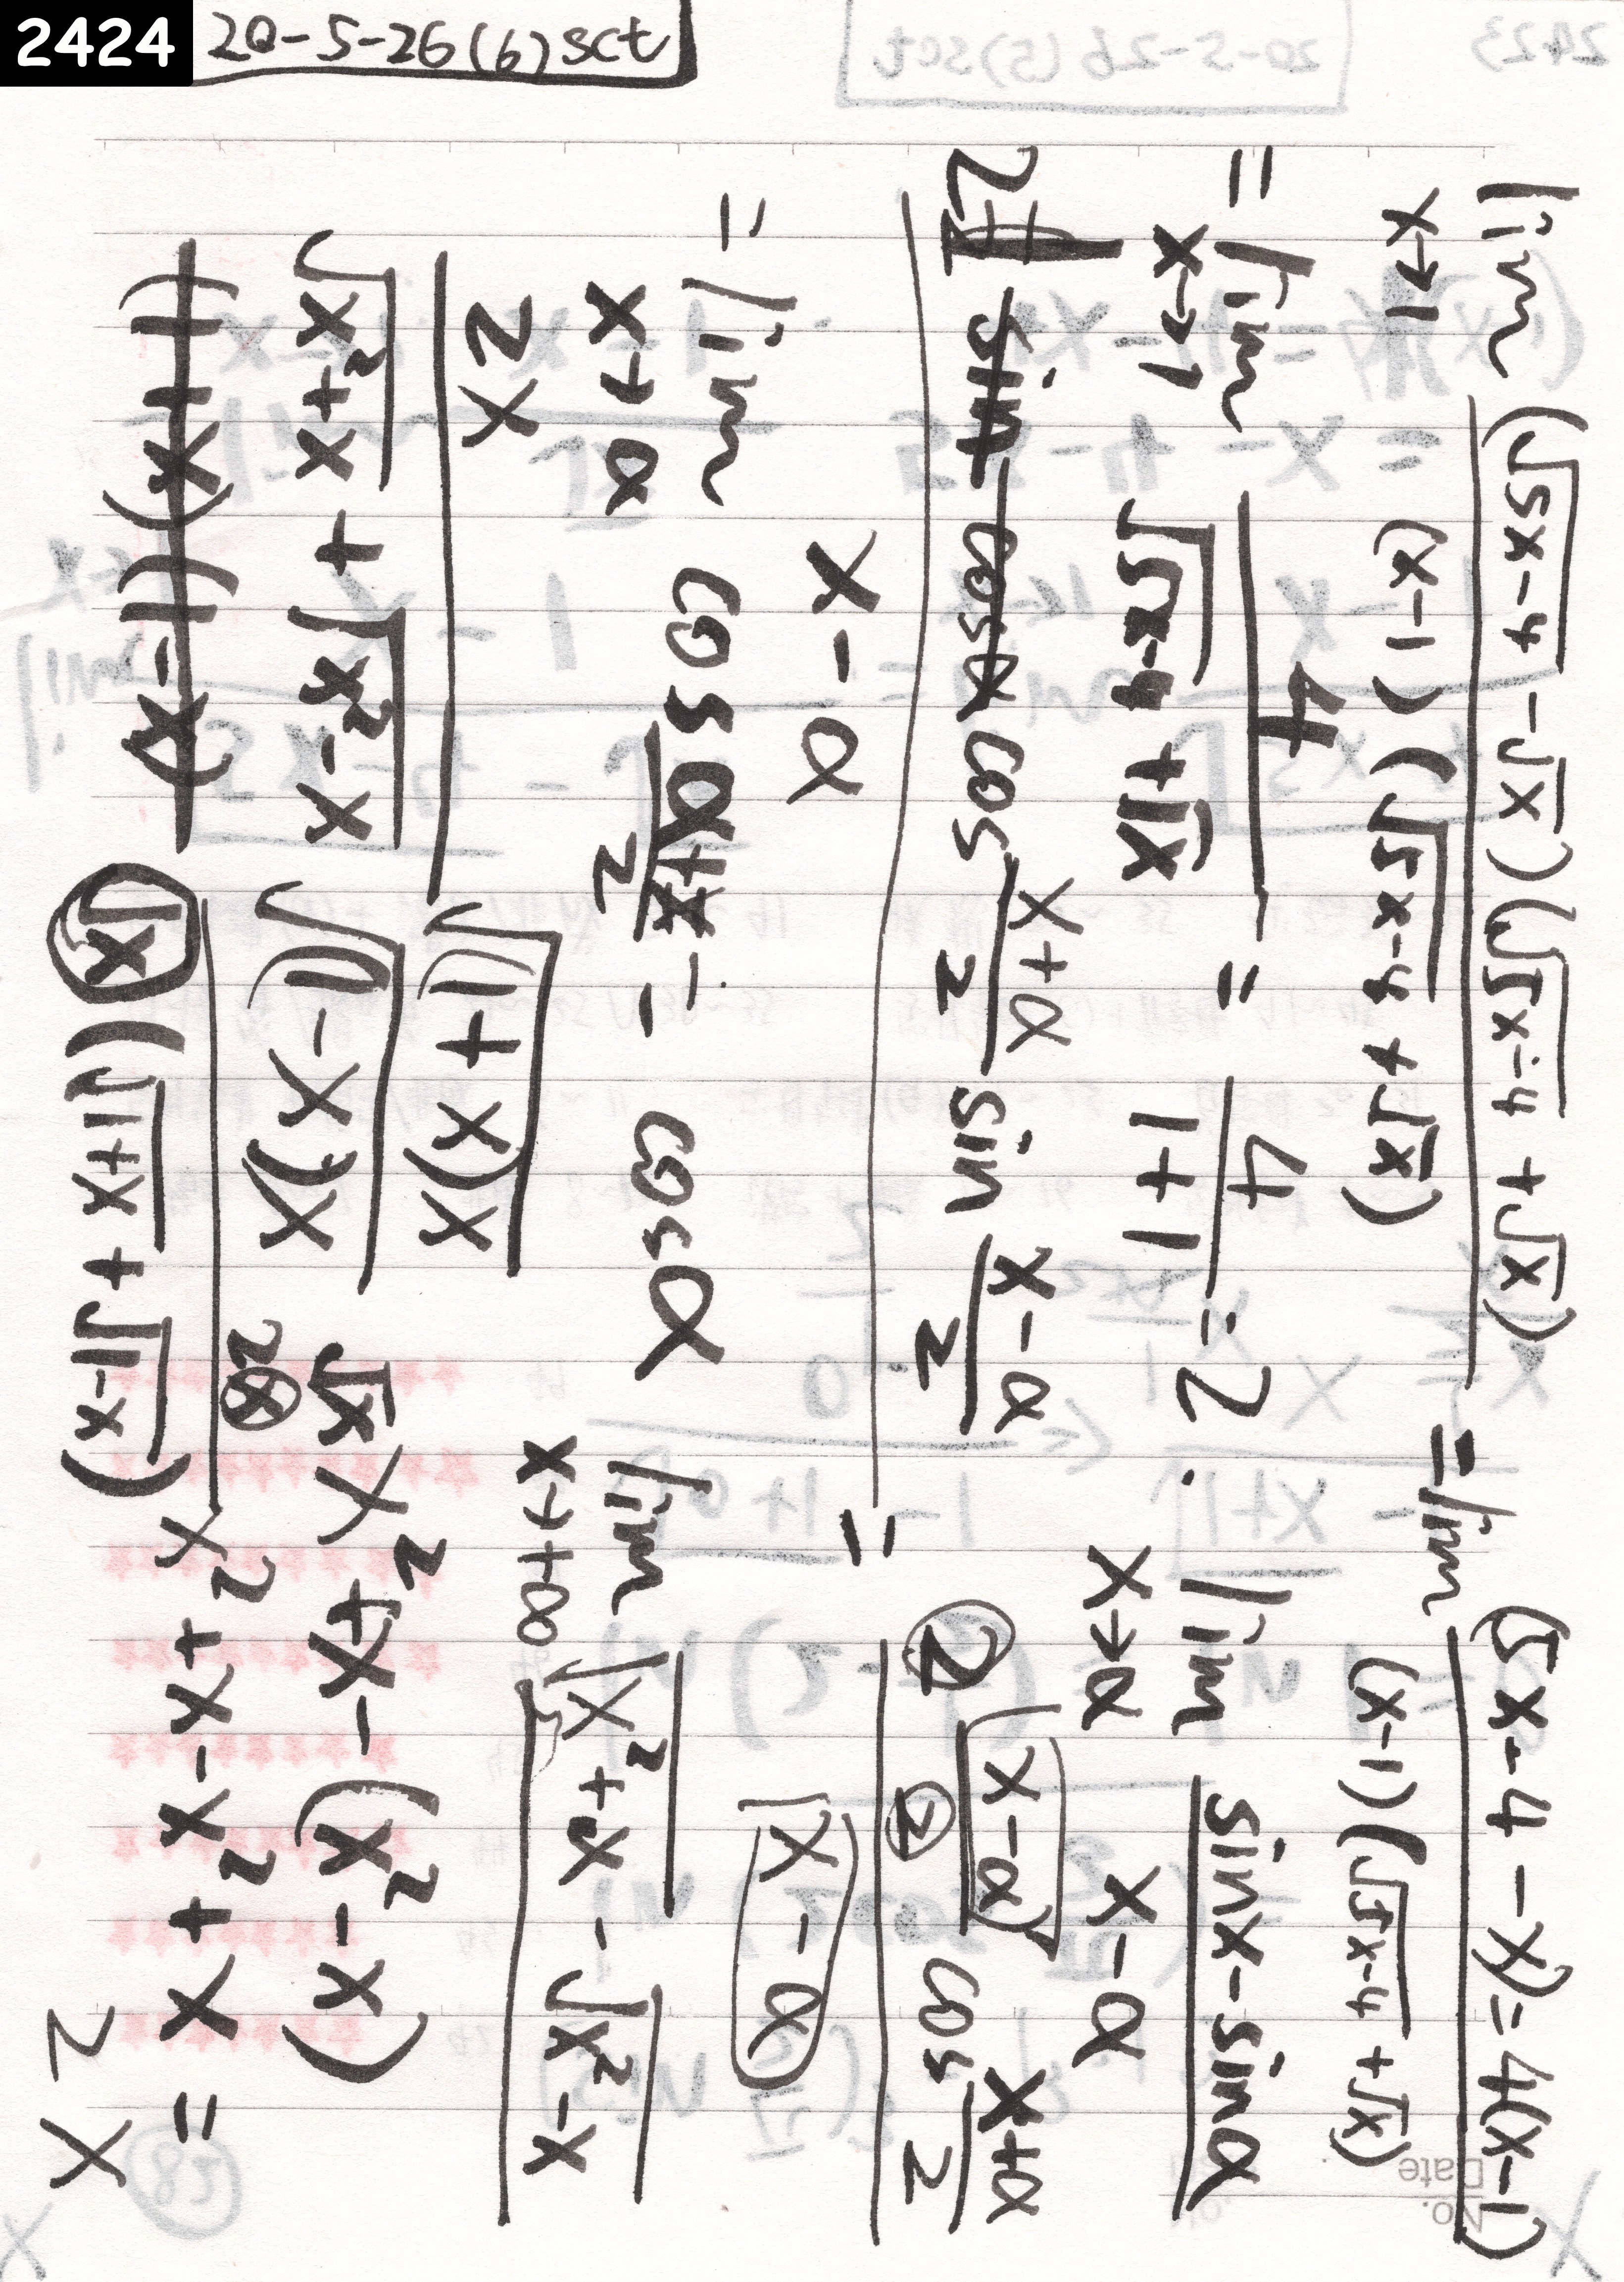 2424
20-5-26(6)sct
lim x→1 (√5x-4 - √x)(√5x-4 + √x) / (x-1)(√5x-4 + √x) = lim (5x-4-x) = 4(x-1) / (x-1)(√5x-4 + √x)
= lim x→1 4 / √5x-4 + √x = 4 / 1+1 = 2.
lim x→α sinx-sinα / x-α
2 cos x+α / 2 sin x-α / 2
x-α
= 2 x-α / 2 cos x+α / 2
x-α
= lim x→α cos x+α / 2 = cosα
lim x→+∞ √x²+x - √x²-x
2x
√x²+x + √x²-x
√x(x+1)
√x(x-1)
2x
√x (√x+1 + √x-1)
√x
x²+x-(x²-x)
x²+x-x²+x = 2x